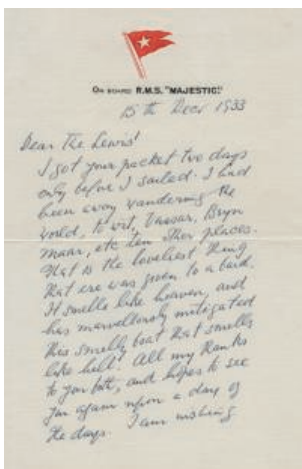 ON BOARD R.M.S. "MAJESTIC."
15th Decr 1933
Dear The Lewis!
I got your packet two days
only before I sailed. I had
been away wandering the
world, to wit, Vassar, Bryn
mawr, etc ten other places.
That is the loveliest thing
that ere was given to a bard.
It smells like heaven, and
has marvellously mitigated
this smelly boat that smells
like hell! All my thanks
to you both, and hopes to see
you again upon a day of
the days. I am wishing